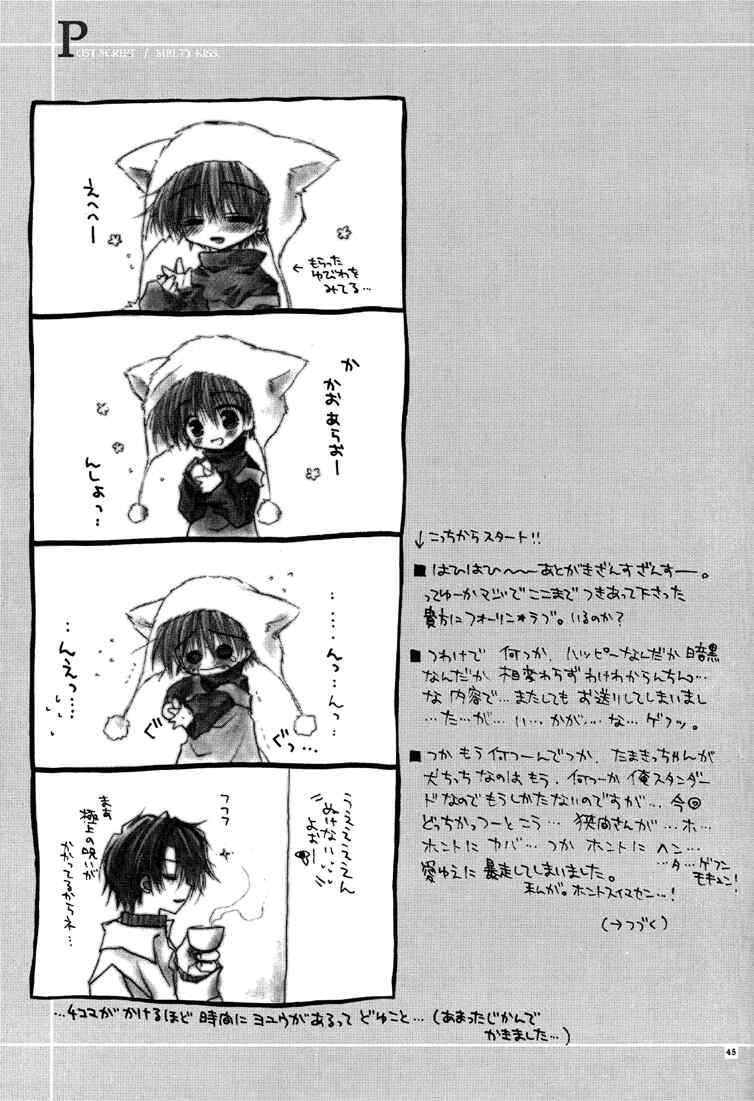 POST SCRIPT / MELTY KISS.
えへへー
← もらった
ゆびわを
みてる…
か
かおあらおー
んしょっ…
……んっ…んっ…
…んえっ…
ぐ゛
ぐっ…
うえええええん
ぬけない…
よおー
フフフ
まぁ
極上の呪いが
かかってるからネ…
↓こっちからスタート!!
■はひはひ〜〜あとがきざんすざんすー。
ってゆーかマジでここまでつきあって下さった
貴方にフォーリン★ラブ。いるのか?
■つわけで 何つか、ハッピーなんだか暗黒
なんだか相変わらずわけわからんちんっ…
な内容で…またしてもお送りしてしまいまし
…た…が…い…かが…な…ゲフッ。
■つかもう何つーんでつか、たまきっちゃんが
犬ちっちなのはもう、何つーか俺スタンダー
ドなのでもうしかたないのですが…今回
どっちかっつーとこう… 狭間さんが…ホ…
ホントにヤバ…つかホントにヘン…
…タ…ゲフン
モキュン!
愛ゆえに暴走してしまいました。
私が。ホントスイマセン…!
(→つづく)
…4コマがかけるほど時間にヨユウがあるってどゆこと…(あまったじかんで
かきました…)
45